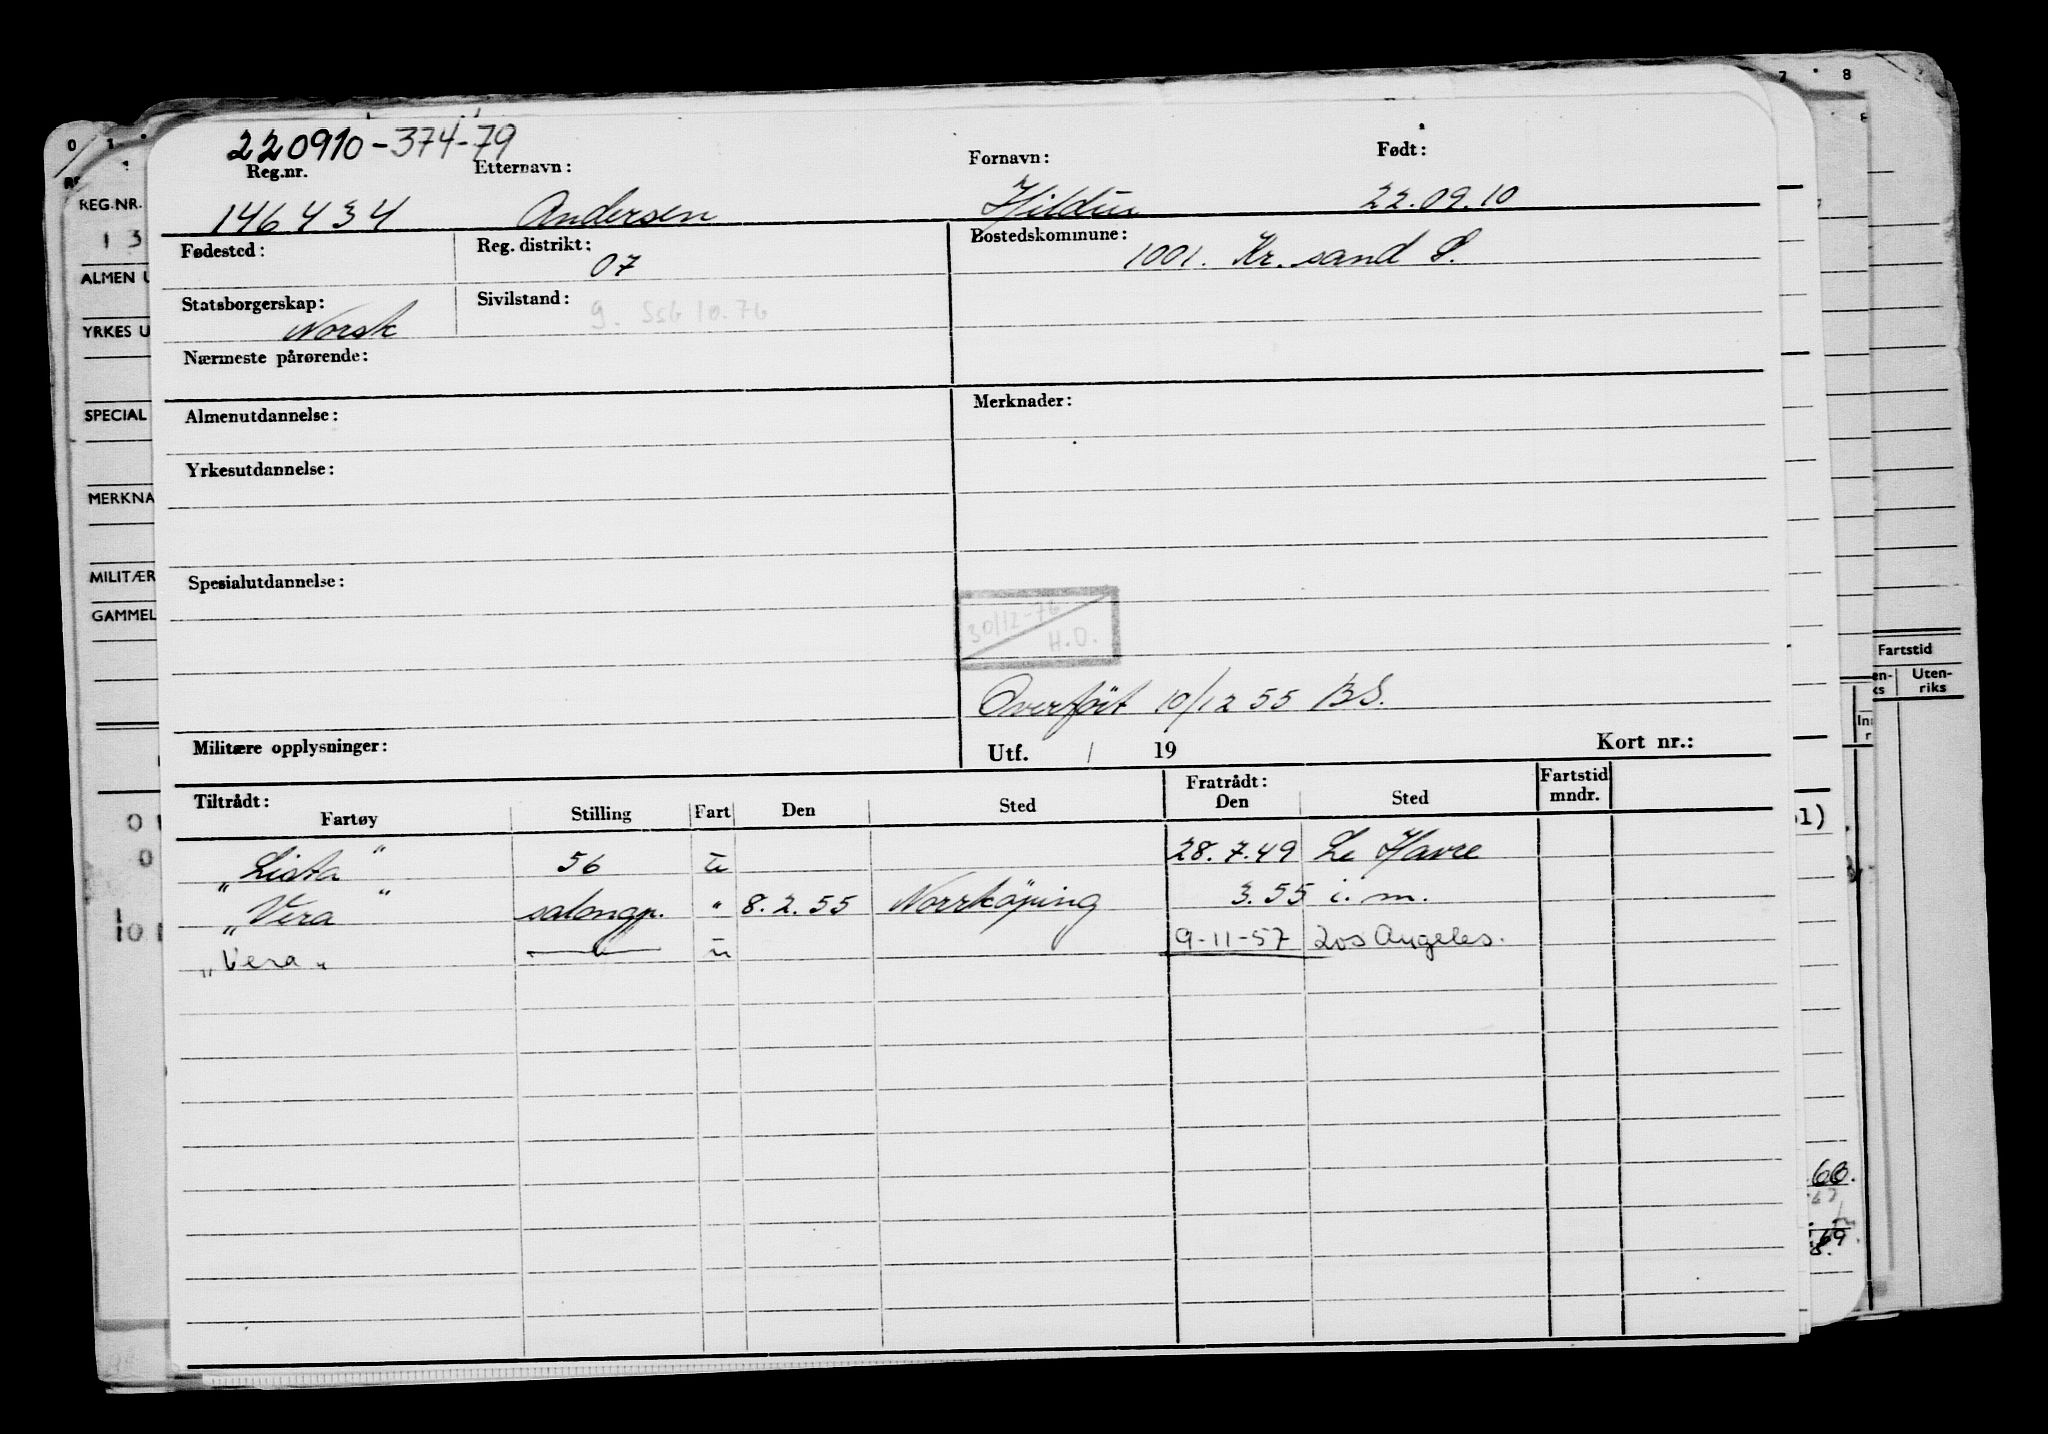 220910-374-79
Reg.nr. Etternavn: Fornavn: Født:
146434 Andersen Hildur 22.09.10
Fødested: Reg. distrikt: 07 Bostedskommune: 1001. Kr. sand S.
Statsborgerskap: Norsk Sivilstand: 9. SSB 10.76
Nærmeste pårørende:
Almenutdannelse: Merknader:
Yrkesutdannelse:
Spesialutdannelse:
30/12-76
H.O.
Overført 10/12 55 BS.
Militære opplysninger: Utf. / 19 Kort nr.:
Tiltrådt: Fratrådt: Fartstid
Fartøy Stilling Fart Den Sted Den Sted mndr.
„Lista" 56 u 28.7.49 Le Havre
„Vera" salongp. " 8.2.55 Norrköping 3.55 i.m.
„Vera„ —"— u 9-11-57 Los Angeles.
0 1
REG.NR.
1 3
ALMEN U
YRKES U
SPECIAL
MERKNA
MILITÆR
GAMMEL
0
0
10
7 8
8
Fartstid
Uten-
riks
51)
60.
69.